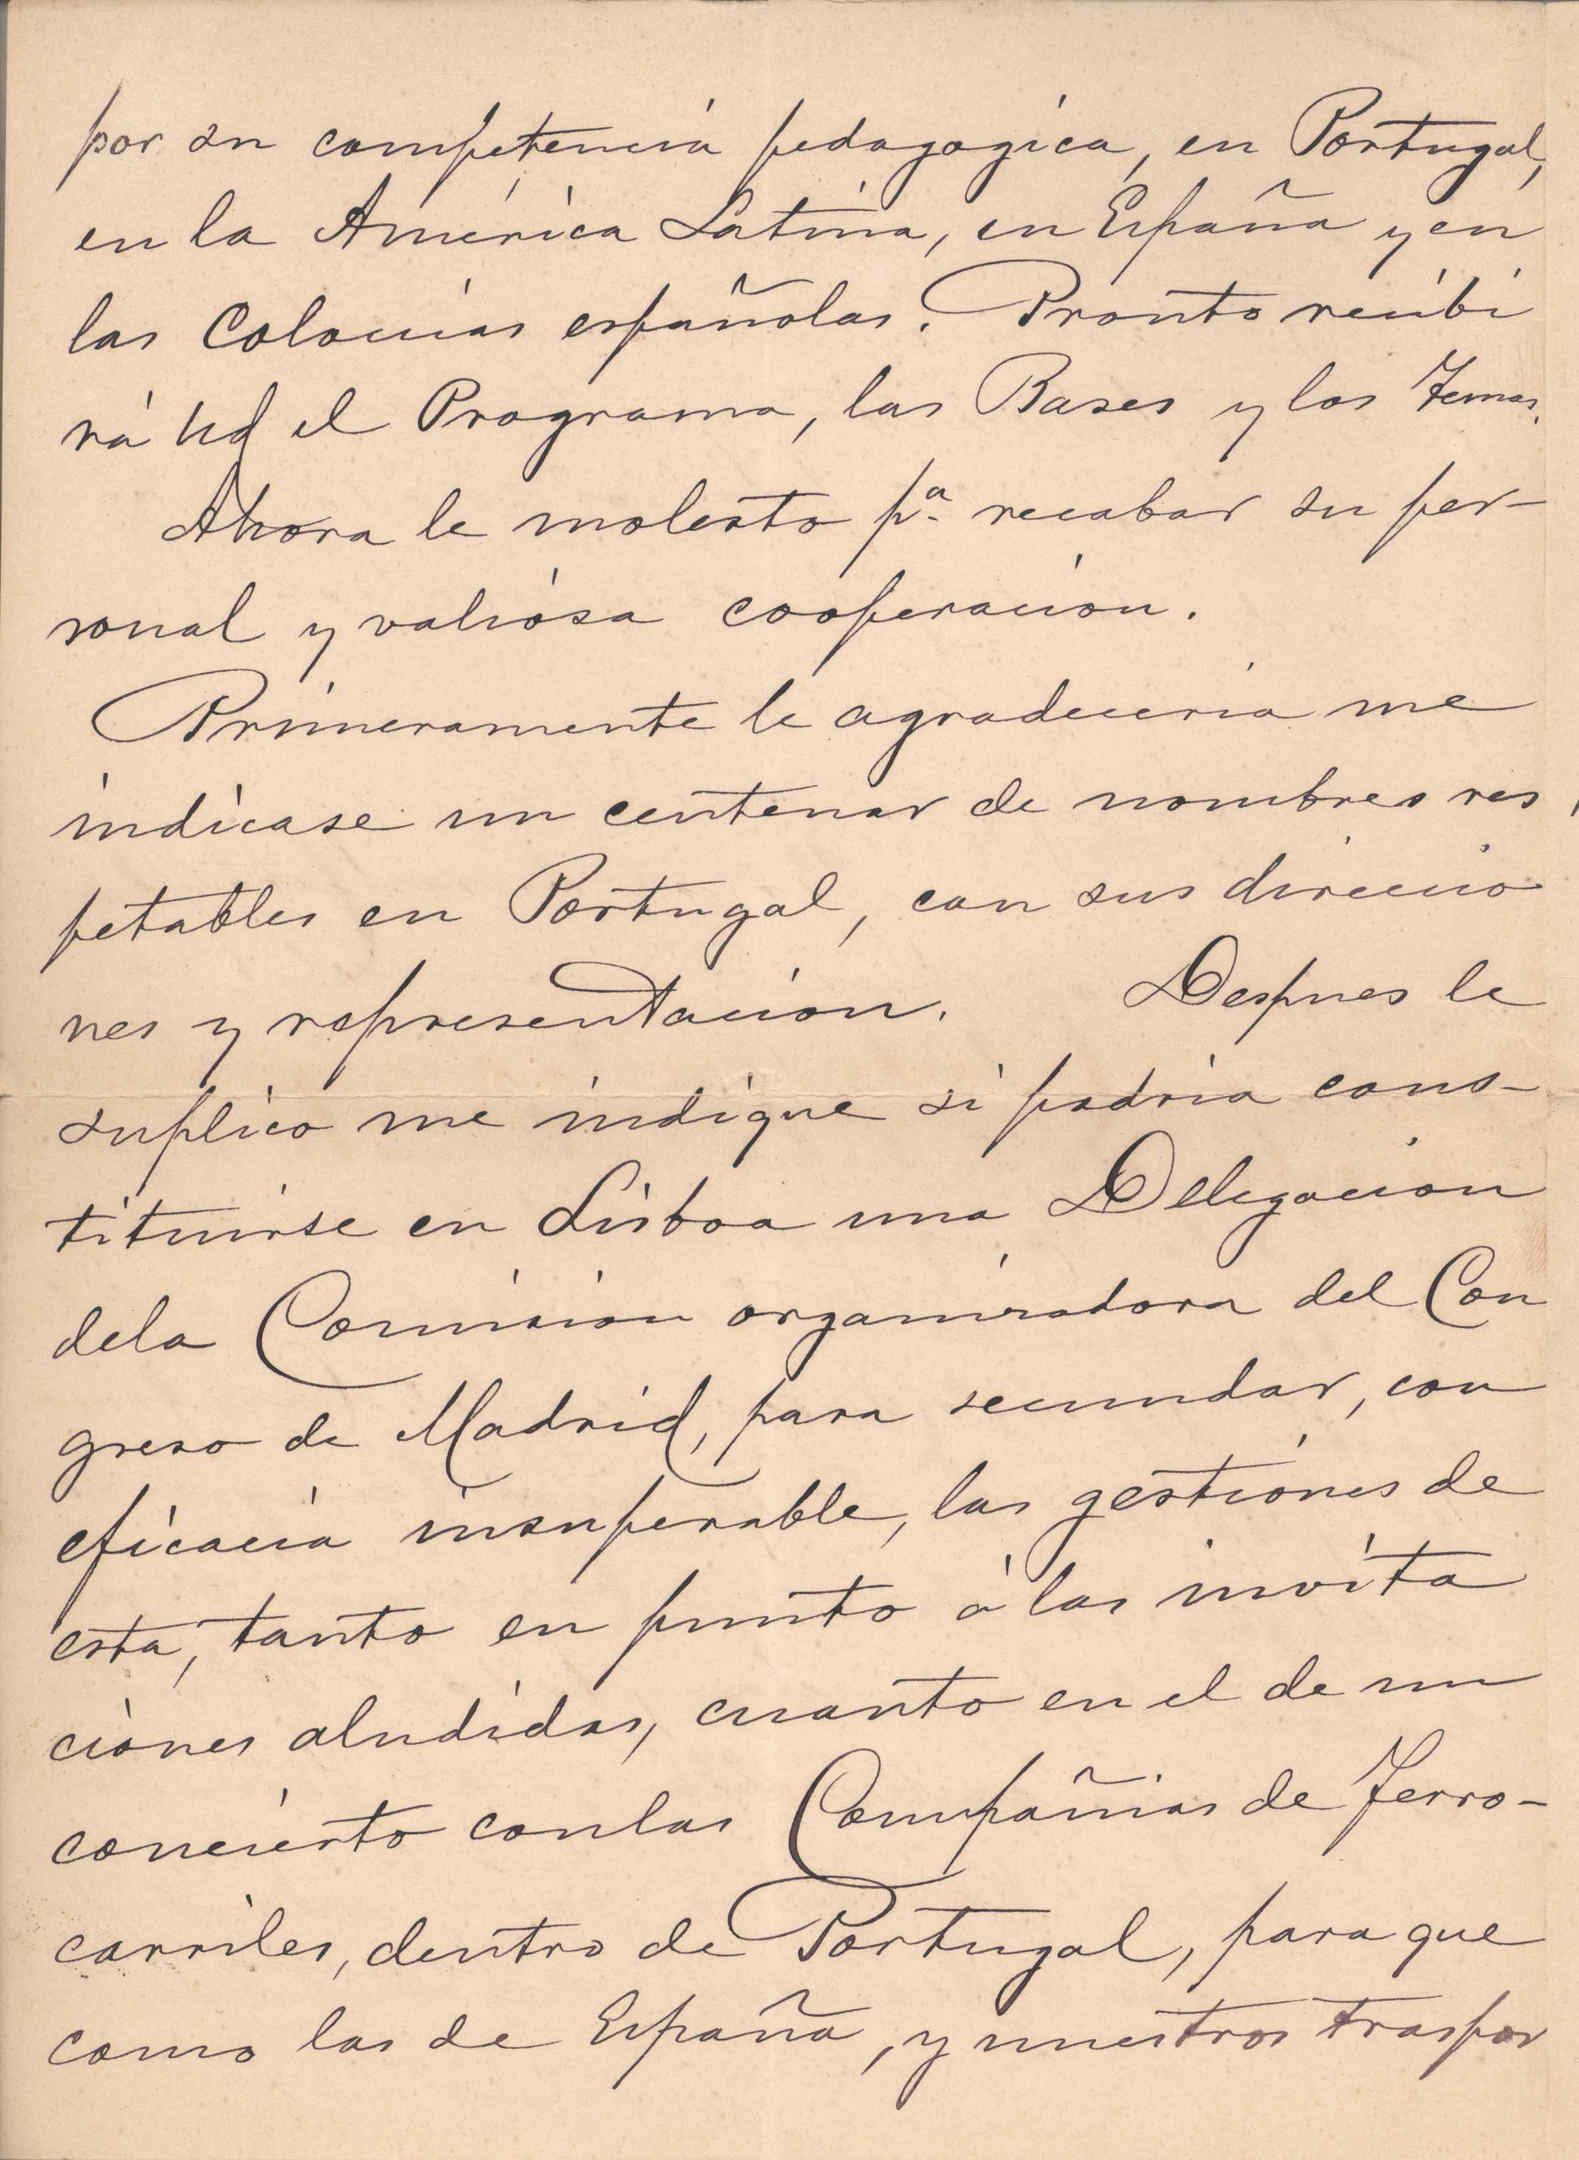 por su competencia pedagogica, en Portugal,
en la América Latina, en España y en
las Colonias españolas. Pronto recibi
rá Ud el Programa, las Bases y los Temas.
Ahora le molesto pª recabar su per-
sonal y valiosa cooperacion.
Primeramente le agradeceria me
indicase un centenar de nombres res
petables en Portugal, con sus direccio
nes y representacion. Despues le
suplico me indique si podria cons-
tituirse en Lisboa una Delegacion
de la Comision organizadora del Con
greso de Madrid, para secundar, con
eficacia insuperable, las gestiones de
esta, tanto en punto á las invita
ciones aludidas, cuanto en el de un
concierto con las Compañias de Ferro-
carriles, dentro de Portugal, para que
como las de España, y nuestros traspor